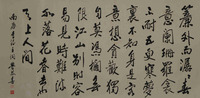 簾外雨潺潺春
意闌珊羅衾
不耐五更寒夢
裏不知身是客一
晌貪歡獨
自莫憑欄無
限江山別時容
易見時難流水
落花春去也
天上人間